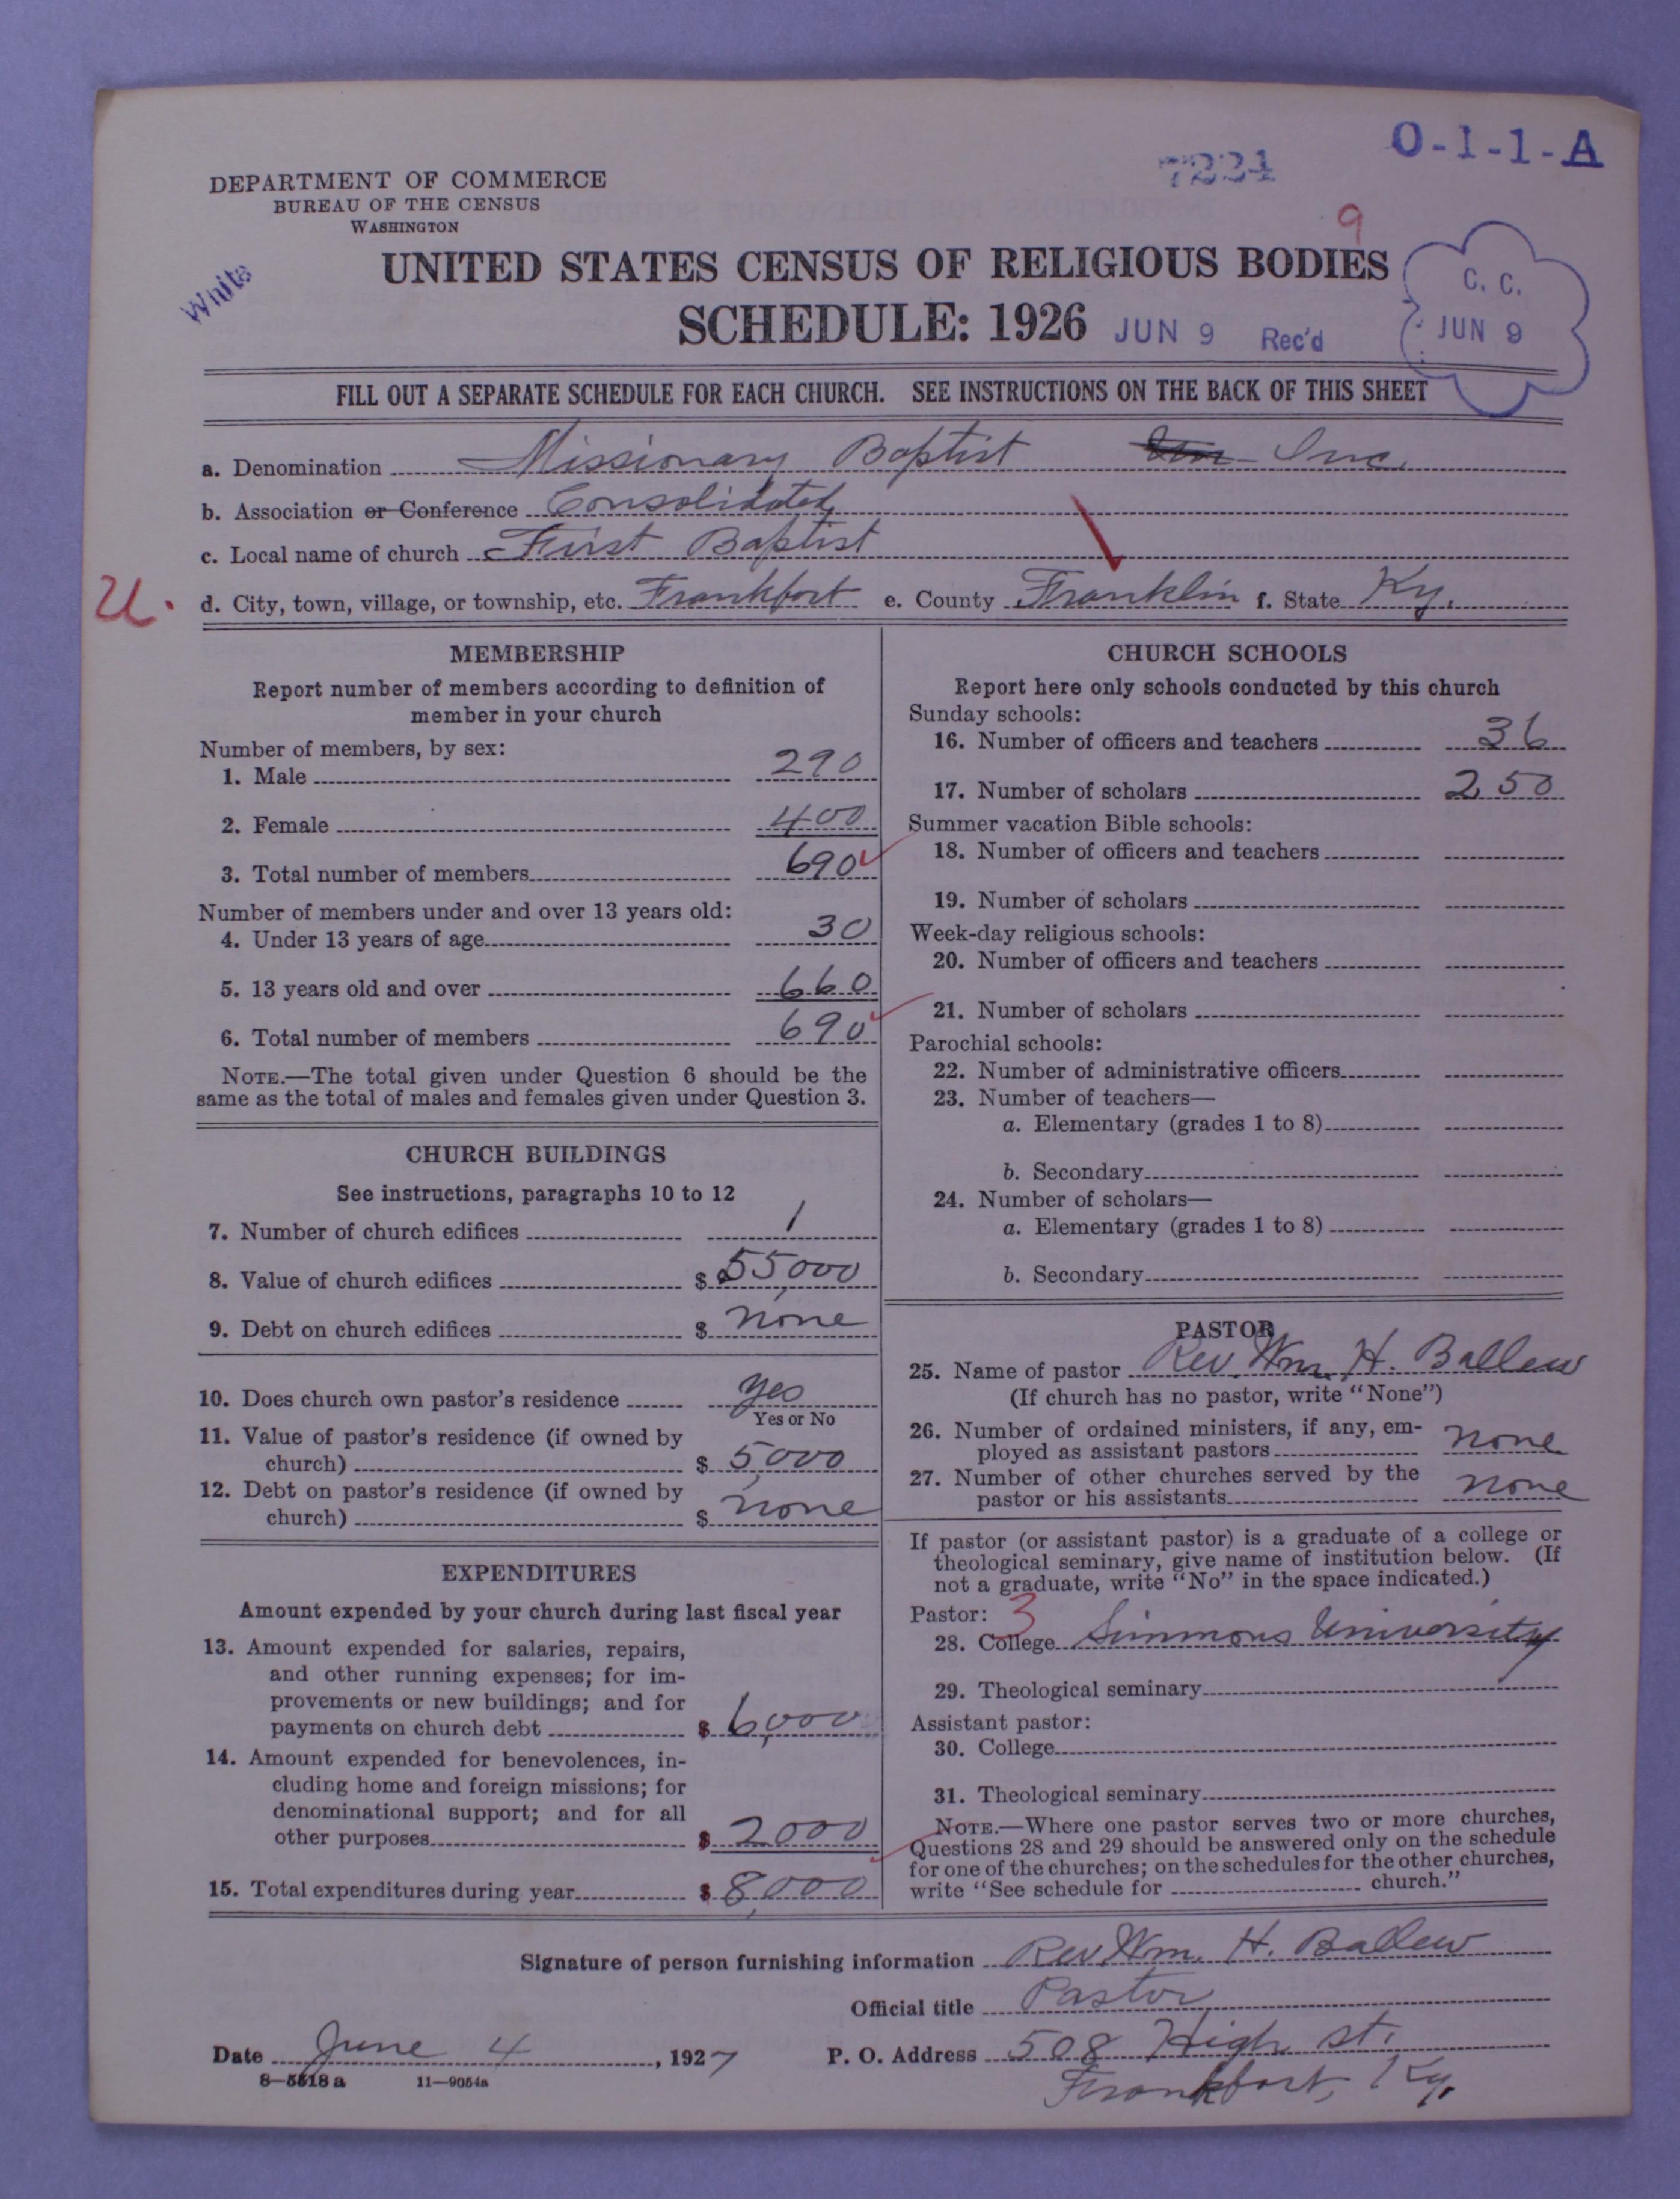 O-1-1-A
7224
DEPARTMENT OF COMMERCE
BUREAU OF THE CENSUS
WASHINGTON
9
White
UNITED STATES CENSUS OF RELIGIOUS BODIES
SCHEDULE: 1926 JUN 9 Rec'd
C. C.
JUN 9
FILL OUT A SEPARATE SCHEDULE FOR EACH CHURCH. SEE INSTRUCTIONS ON THE BACK OF THIS SHEET
a. Denomination Missionary Baptist Inc.
b. Association or Conference Consolidated
c. Local name of church First Baptist
U. d. City, town, village, or township, etc. Frankfort e. County Franklin f. State Ky.
MEMBERSHIP
Report number of members according to definition of
member in your church
Number of members, by sex:
1. Male 290
2. Female 400
3. Total number of members 690
Number of members under and over 13 years old:
4. Under 13 years of age 30
5. 13 years old and over 660
6. Total number of members 690
NOTE.—The total given under Question 6 should be the
same as the total of males and females given under Question 3.
CHURCH BUILDINGS
See instructions, paragraphs 10 to 12
7. Number of church edifices 1
8. Value of church edifices $ 55,000
9. Debt on church edifices $ none
10. Does church own pastor's residence yes
Yes or No
11. Value of pastor's residence (if owned by
church) $ 5,000
12. Debt on pastor's residence (if owned by
church) $ none
EXPENDITURES
Amount expended by your church during last fiscal year
13. Amount expended for salaries, repairs,
and other running expenses; for im-
provements or new buildings; and for
payments on church debt $ 6,000
14. Amount expended for benevolences, in-
cluding home and foreign missions; for
denominational support; and for all
other purposes $ 2000
15. Total expenditures during year $ 8,000
CHURCH SCHOOLS
Report here only schools conducted by this church
Sunday schools:
16. Number of officers and teachers 36
17. Number of scholars 250
Summer vacation Bible schools:
18. Number of officers and teachers
19. Number of scholars
Week-day religious schools:
20. Number of officers and teachers
21. Number of scholars
Parochial schools:
22. Number of administrative officers
23. Number of teachers—
a. Elementary (grades 1 to 8)
b. Secondary
24. Number of scholars—
a. Elementary (grades 1 to 8)
b. Secondary
PASTOR
25. Name of pastor Rev. Wm. H. Ballew
(If church has no pastor, write "None")
26. Number of ordained ministers, if any, em-
ployed as assistant pastors none
27. Number of other churches served by the
pastor or his assistants none
If pastor (or assistant pastor) is a graduate of a college or
theological seminary, give name of institution below. (If
not a graduate, write "No" in the space indicated.)
Pastor: 3
28. College Simmons University
29. Theological seminary
Assistant pastor:
30. College
31. Theological seminary
NOTE.—Where one pastor serves two or more churches,
Questions 28 and 29 should be answered only on the schedule
for one of the churches; on the schedules for the other churches,
write "See schedule for church."
Signature of person furnishing information Rev. Wm. H. Ballew
Official title Pastor
Date June 4, 1927 P. O. Address 508 High st.
8—5518a 11—9054a Frankfort, Ky.